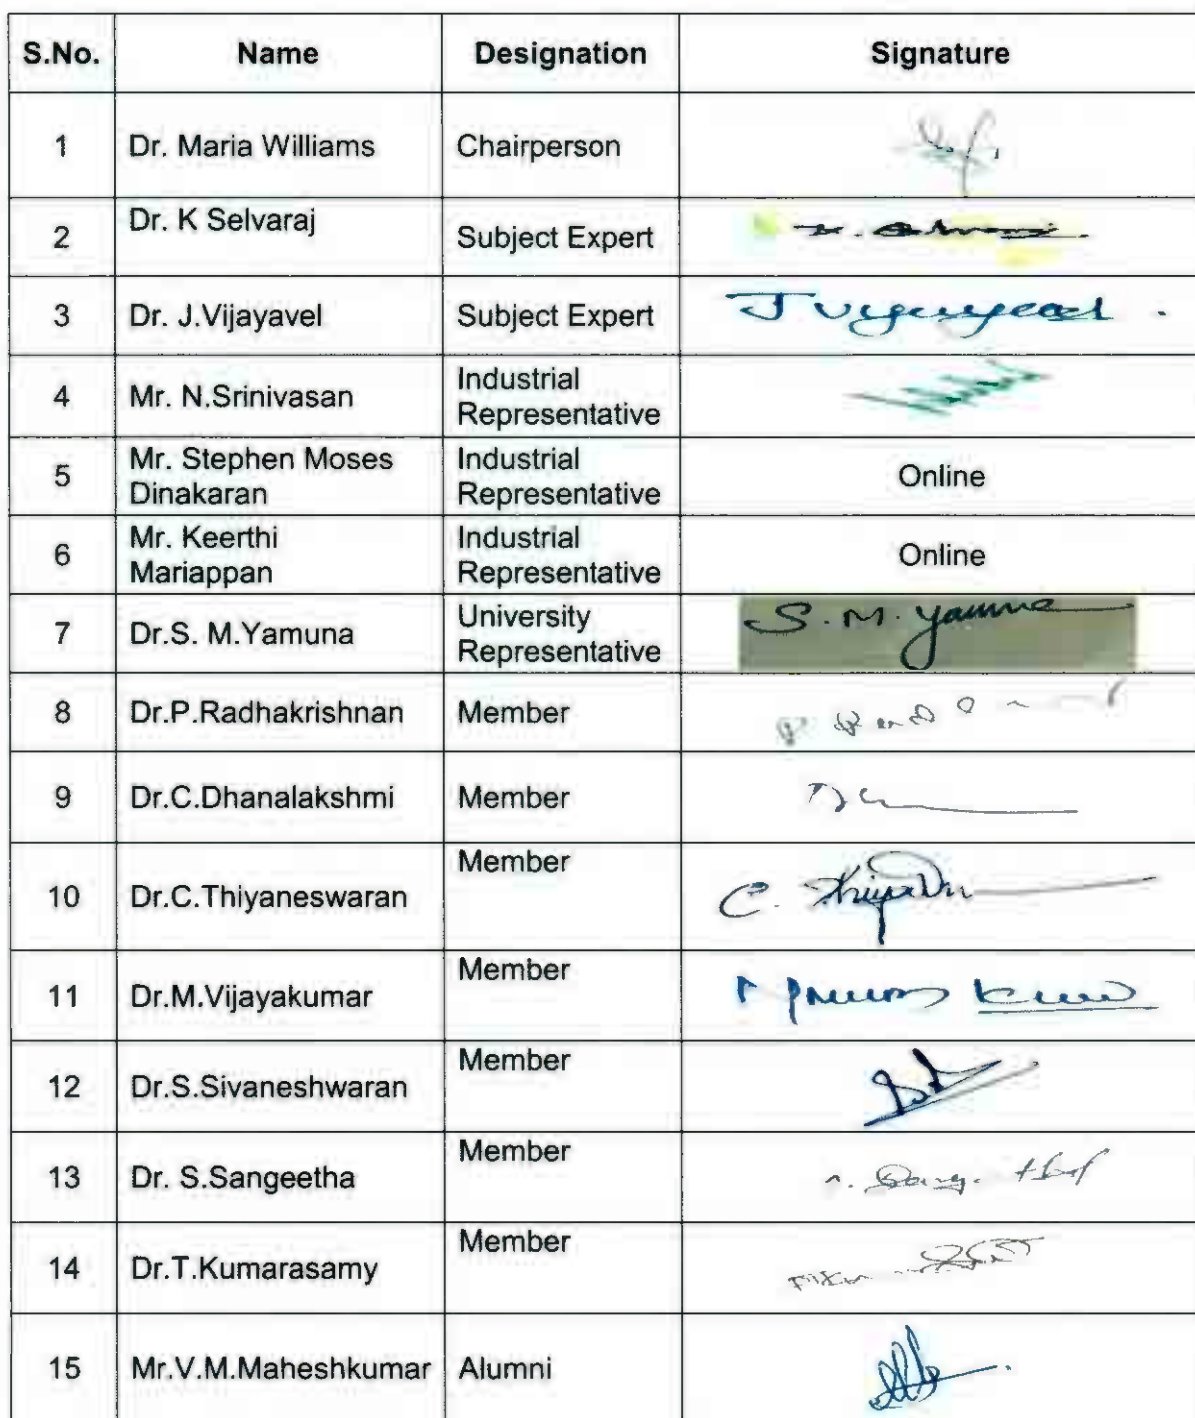 S.No. Name Designation Signature
1 Dr. Maria Williams Chairperson
2 Dr. K Selvaraj Subject Expert
3 Dr. J.Vijayavel Subject Expert J Vijayavel.
4 Mr. N.Srinivasan Industrial
Representative
5 Mr. Stephen Moses
Dinakaran Industrial
Representative Online
6 Mr. Keerthi
Mariappan Industrial
Representative Online
7 Dr.S. M.Yamuna University
Representative S. M. Yamuna
8 Dr.P.Radhakrishnan Member
9 Dr.C.Dhanalakshmi Member
10 Dr.C.Thiyaneswaran Member
11 Dr.M.Vijayakumar Member
12 Dr.S.Sivaneshwaran Member
13 Dr. S.Sangeetha Member
14 Dr.T.Kumarasamy Member
15 Mr.V.M.Maheshkumar Alumni